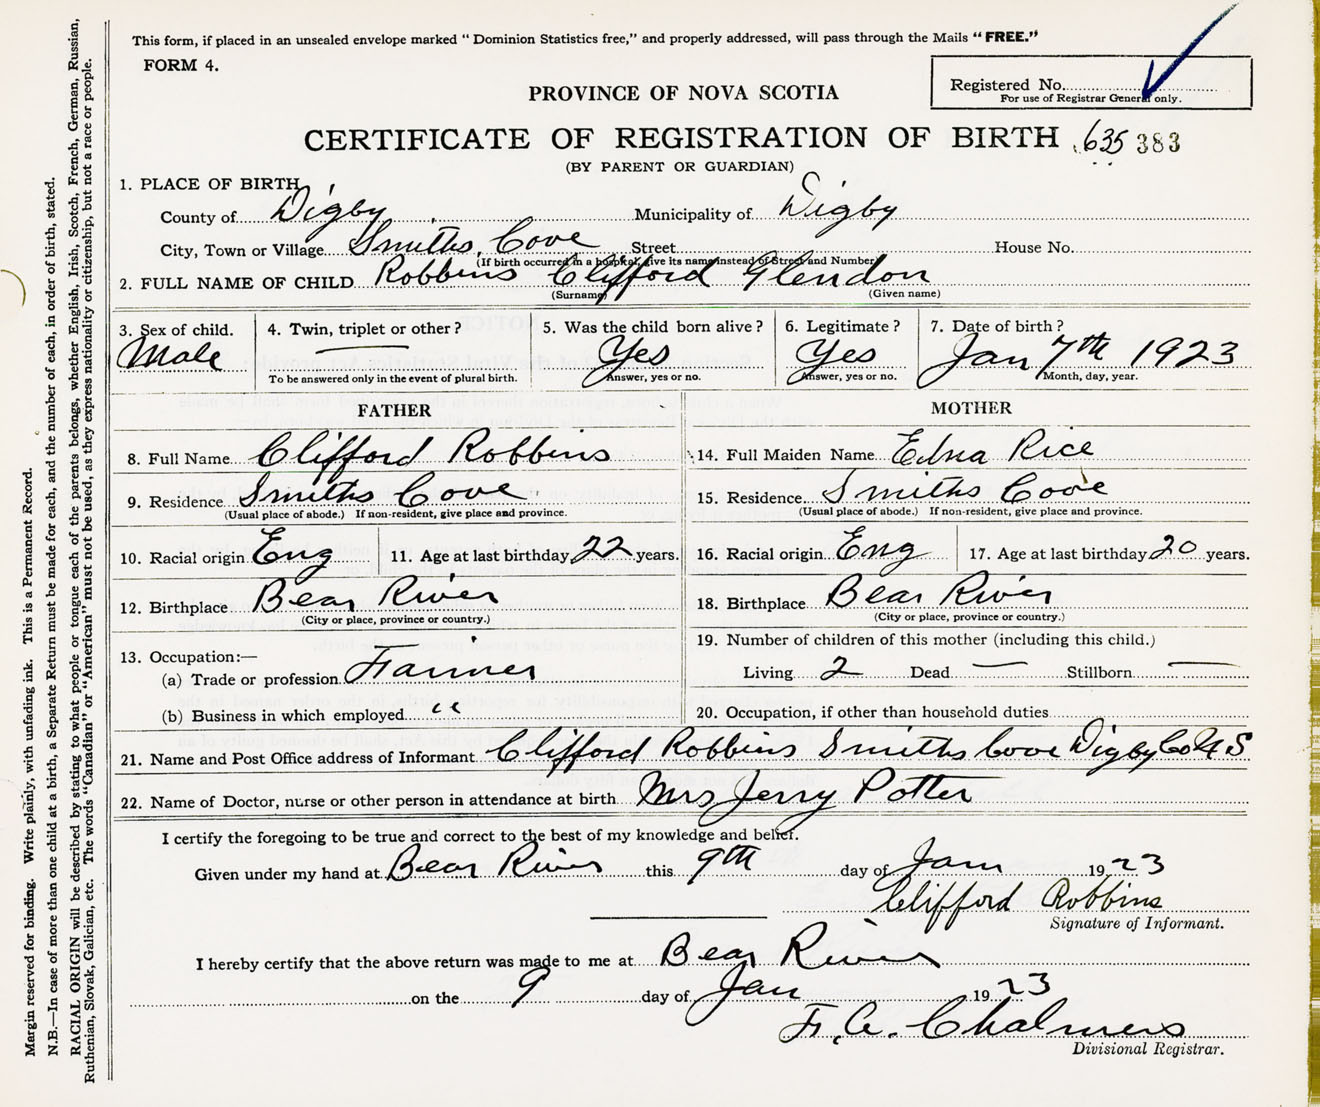 This form, if placed in an unsealed envelope marked "Dominion Statistics free," and properly addressed, will pass through the Mails "FREE."
FORM 4.
Registered No.
For use of Registrar General only.
PROVINCE OF NOVA SCOTIA
CERTIFICATE OF REGISTRATION OF BIRTH 635 383
(BY PARENT OR GUARDIAN)
1. PLACE OF BIRTH
County of Digby Municipality of Digby
City, Town or Village Smiths Cove Street House No.
(If birth occurred in a hospital, give its name instead of Street and Number)
2. FULL NAME OF CHILD Robbins Clifford Glendon
(Surname) (Given name)
3. Sex of child. 4. Twin, triplet or other? 5. Was the child born alive? 6. Legitimate? 7. Date of birth?
Male Yes Yes Jan 7th 1923
To be answered only in the event of plural birth. Answer, yes or no. Answer, yes or no. Month, day, year.
FATHER MOTHER
8. Full Name Clifford Robbins 14. Full Maiden Name Edna Rice
9. Residence Smiths Cove 15. Residence Smiths Cove
(Usual place of abode.) If non-resident, give place and province. (Usual place of abode.) If non-resident, give place and province.
10. Racial origin Eng 11. Age at last birthday 22 years. 16. Racial origin Eng 17. Age at last birthday 20 years.
12. Birthplace Bear River 18. Birthplace Bear River
(City or place, province or country.) (City or place, province or country.)
13. Occupation:— 19. Number of children of this mother (including this child.)
(a) Trade or profession Farmer Living 2 Dead — Stillborn —
(b) Business in which employed " 20. Occupation, if other than household duties
21. Name and Post Office address of Informant Clifford Robbins Smiths Cove Digby Co N S
22. Name of Doctor, nurse or other person in attendance at birth Mrs Jerry Potter
I certify the foregoing to be true and correct to the best of my knowledge and belief.
Given under my hand at Bear River this 9th day of Jan 1923
Clifford Robbins
Signature of Informant.
I hereby certify that the above return was made to me at Bear River
on the 9 day of Jan 1923
F. A. Chalmers
Divisional Registrar.
Margin reserved for binding. Write plainly, with unfading ink. This is a Permanent Record.
N.B.—In case of more than one child at a birth, a Separate Return must be made for each, and the number of each, in order of birth, stated.
RACIAL ORIGIN will be described by stating to what people or tongue each of the parents belongs, whether English, Irish, Scotch, French, German, Russian,
Ruthenian, Slovak, Galician, etc. The words "Canadian" or "American" must not be used, as they express nationality or citizenship, but not a race or people.